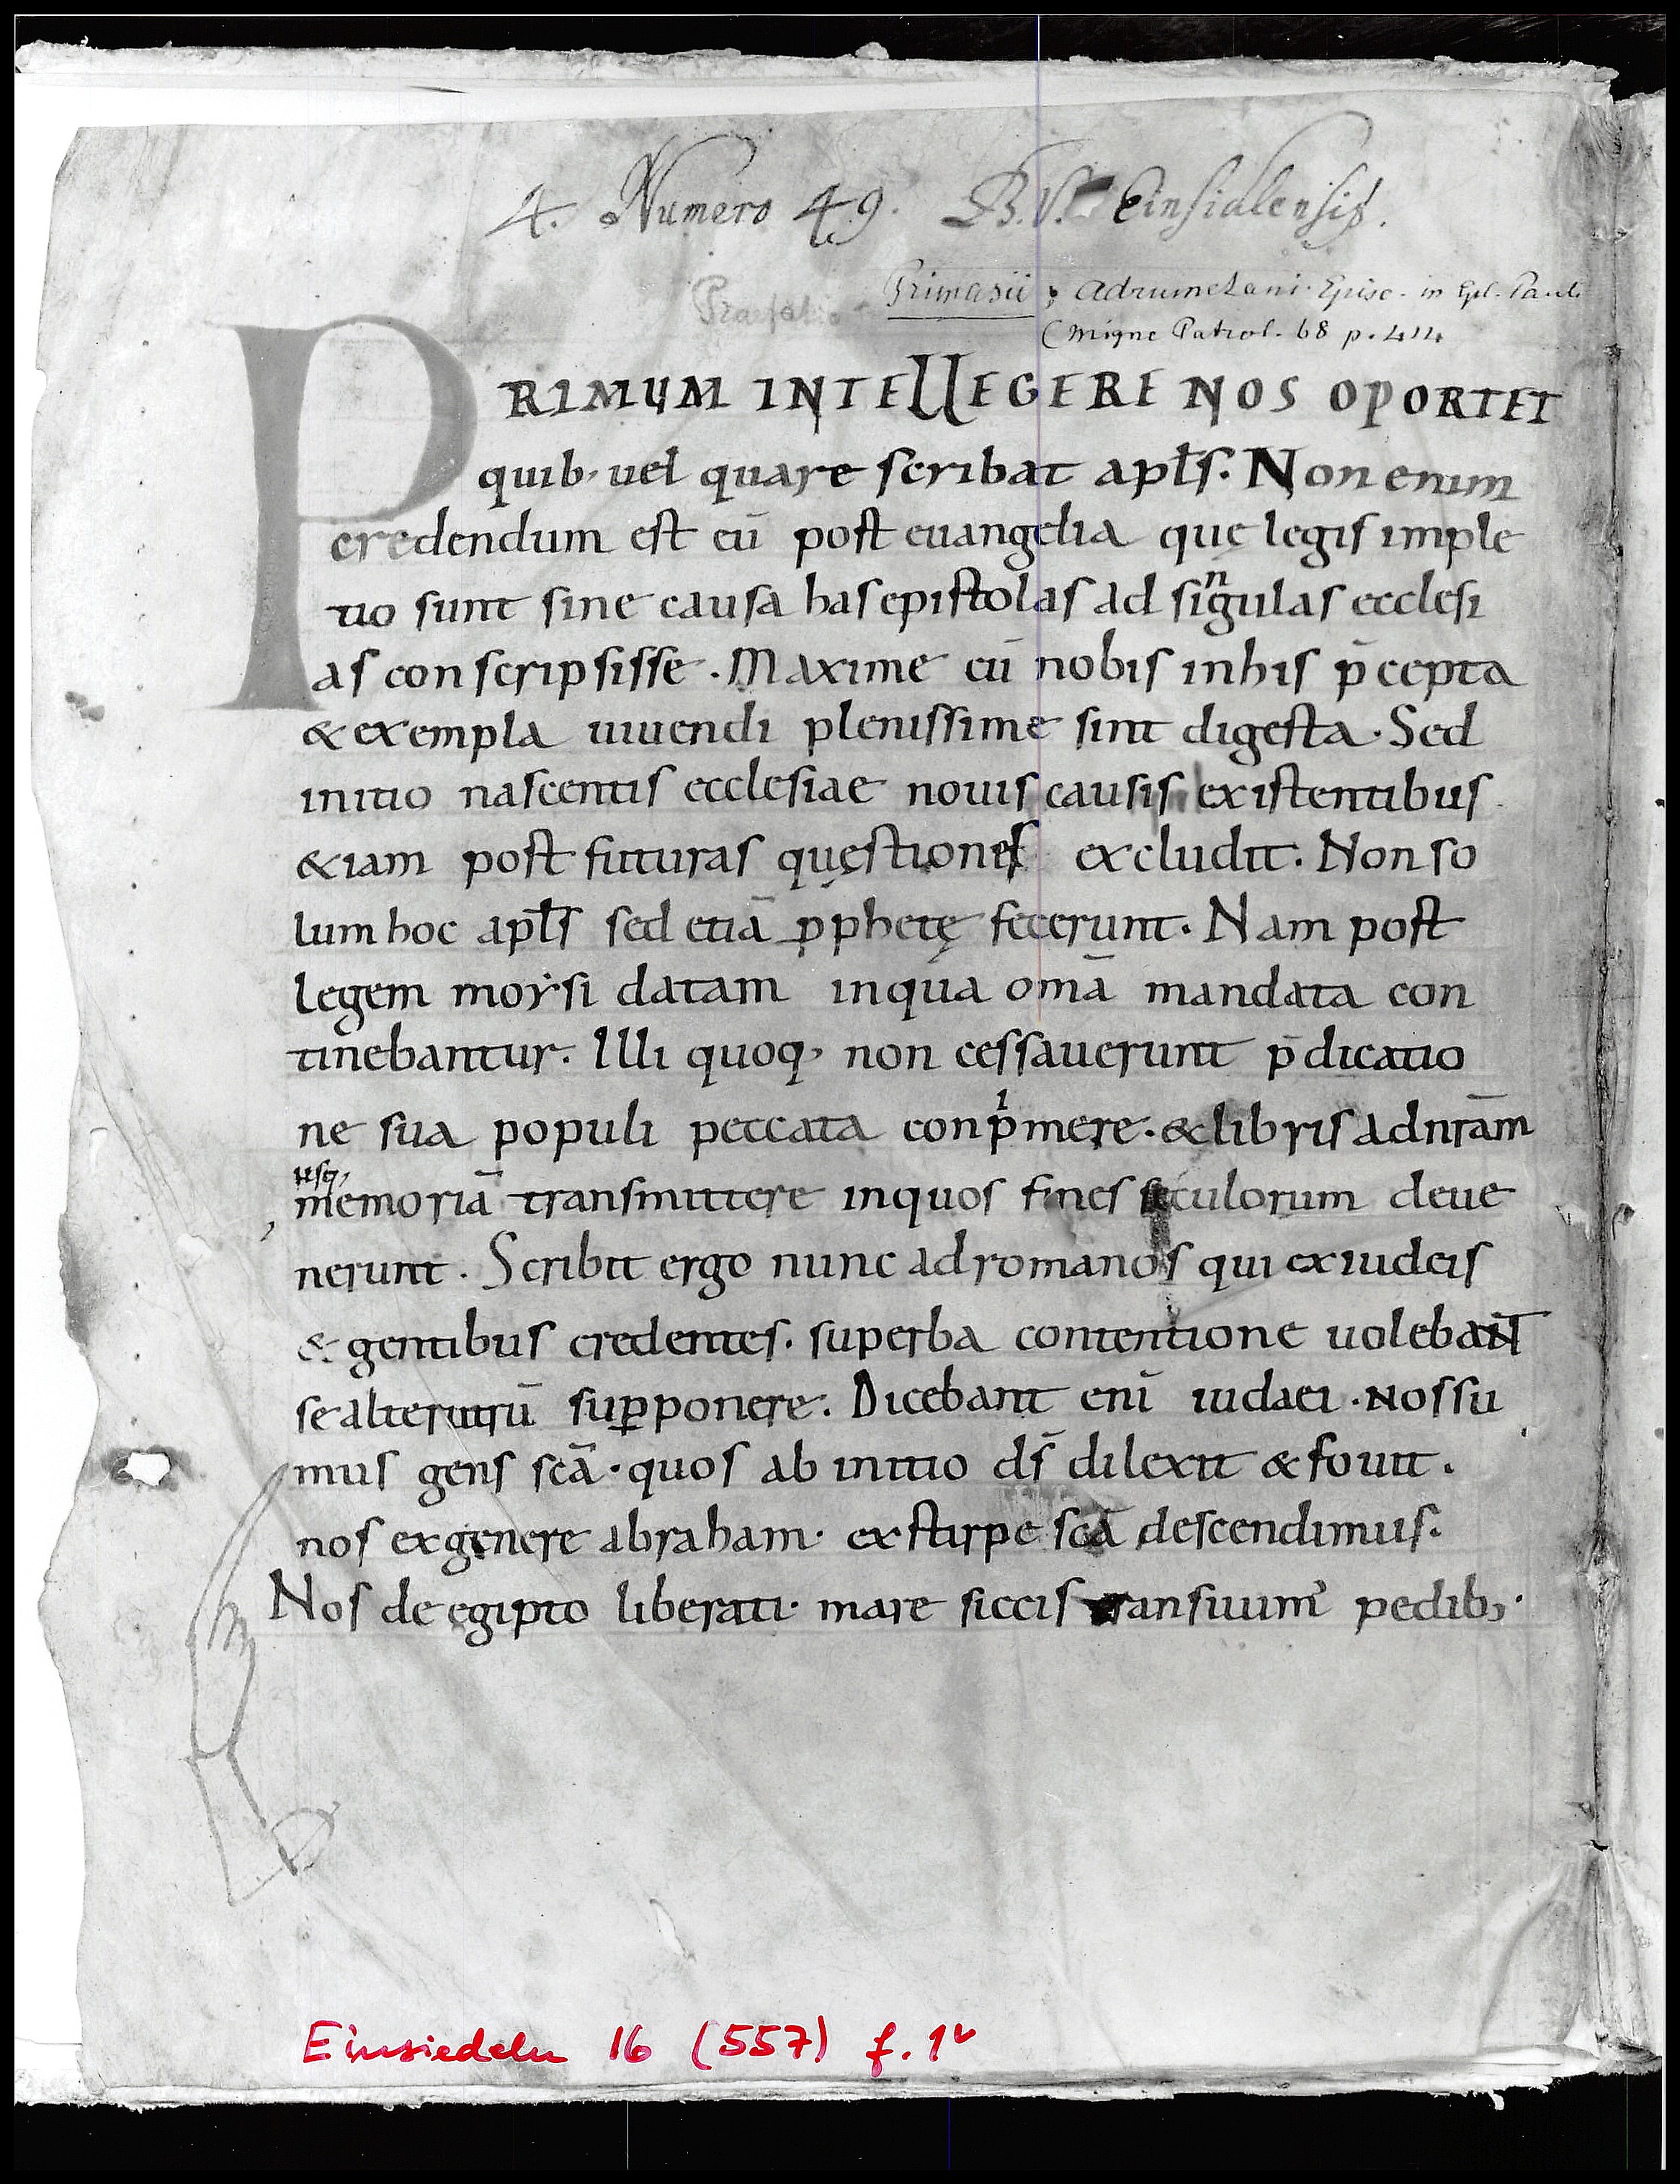 4. Numero 49. B.V. Einsidlensis.
Praefatio Primasii, Adrumetani. Episc. in Epl. Pauli
(Migne Patrol. 68 p. 414
PRIMUM INTELLEGERE NOS OPORTET
quib; uel quare scribat apłs. Non enim
credendum est eū post euangelia quę legis imple
tio sunt sine causa has epistolas ad siⁿgulas ecclesi
as conscripsisse. Maxime cū nobis in his p̄cepta
& exempla uiuendi plenissime sint digesta. Sed
initio nascentis ecclesiae nouis causis existentibus
&iam post futuras quęstiones excludit. Non so
lum hoc apłs sed etiā pphetę fecerunt. Nam post
legem moysi datam in qua om̄a mandata con
tinebantur. Illi quoq; non cessauerunt p̄dicatio
ne sua populi peccata conpⁱmere. & libris ad nr̄am
usq;
memoriā transmittere in quos fines seculorum deue
nerunt. Scribit ergo nunc ad romanos qui ex iudeis
& gentibus credentes. superba contentione uolebant
se alterutrū sup̱ponere. Dicebant eni̅ iudaei. Nos su
mus gens scā. quos ab initio ds̄ dilexit & fouit.
nos ex genere abraham. ex stirpe scā descendimus.
Nos de egipto liberati. mare siccis transiuim᾽ pedib;.
Einsiedeln 16 (557) f. 1v